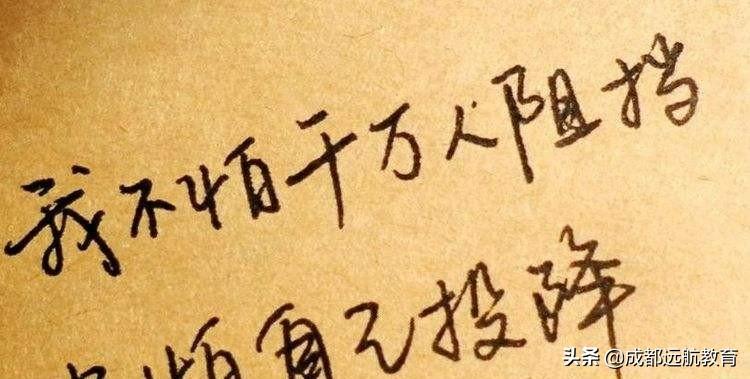 我不怕千万人阻挡
怕自己投降
头条 @成都远航教育